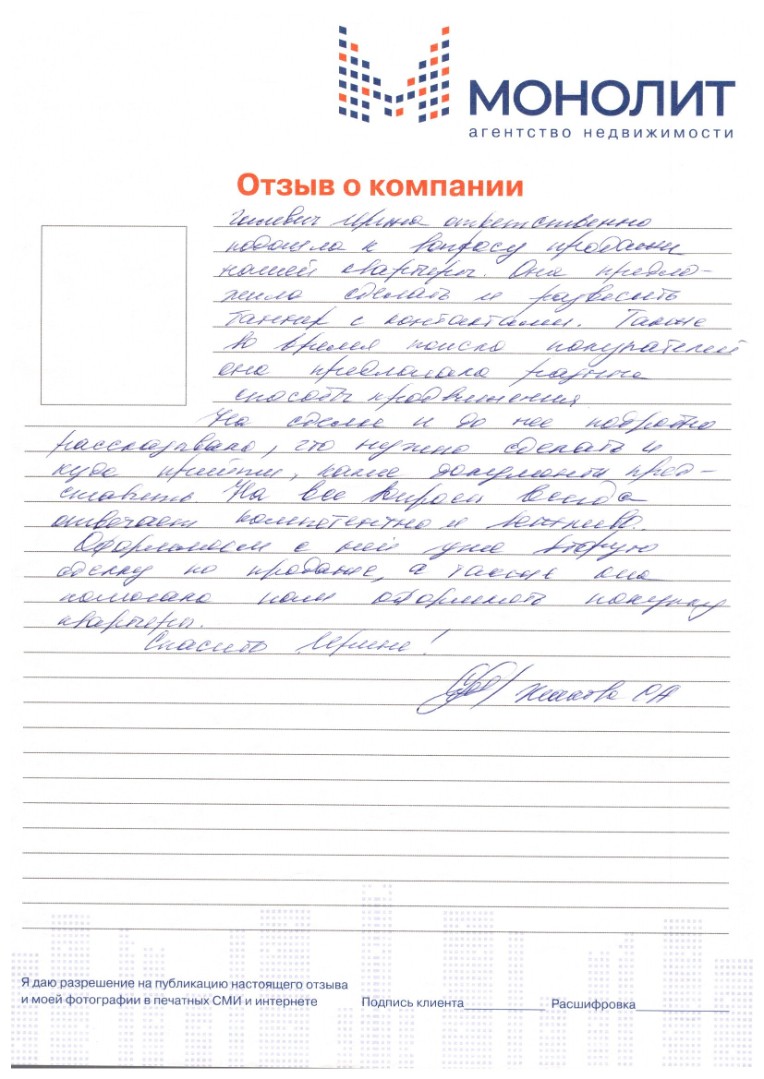 МОНОЛИТ
агентство недвижимости
Отзыв о компании
Гилевич Ирина ответственно
подошла к вопросу продажи
нашей квартиры. Она предло-
жила сделать и развесить
баннер с контактами. Также
во время поиска покупателей
она предлагала разные
способы продвижения
На сделке и до нее подробно
рассказывала, что нужно сделать и
куда прийти, какие документы пред-
ставить. На все вопросы всегда
отвечает компетентно и
Оформляем с ней уже вторую
сделку по продаже, а также она
помогала нам оформлять покупку
квартиры.
Спасибо Ирине!
Я даю разрешение на публикацию настоящего отзыва
и моей фотографии в печатных СМИ и интернете
Подпись клиента
Расшифровка